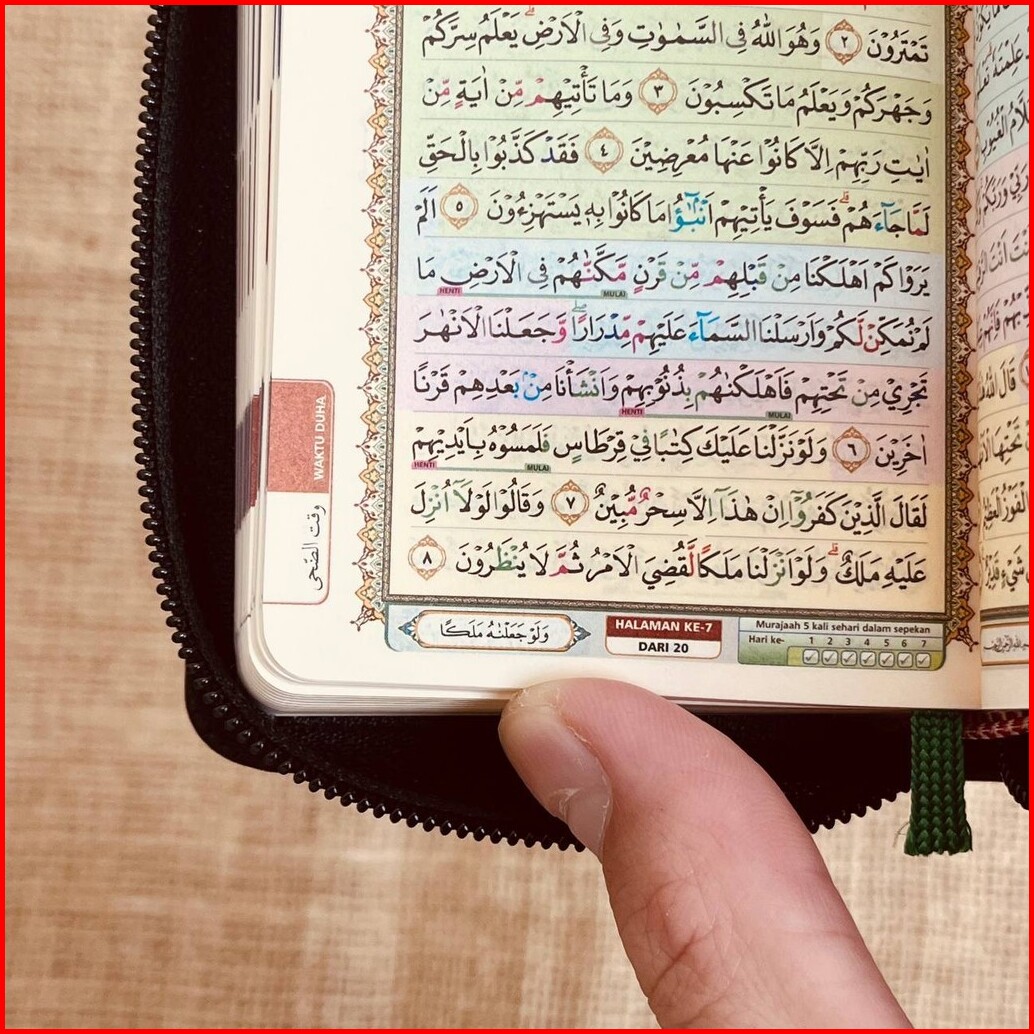 تَمْتَرُوْنَ ٢ وَهُوَ اللّٰهُ فِى السَّمٰوٰتِ وَفِى الْاَرْضِۗ يَعْلَمُ سِرَّكُمْ
وَجَهْرَكُمْ وَيَعْلَمُ مَا تَكْسِبُوْنَ ٣ وَمَا تَأْتِيْهِمْ مِّنْ اٰيَةٍ مِّنْ
اٰيٰتِ رَبِّهِمْ اِلَّا كَانُوْا عَنْهَا مُعْرِضِيْنَ ٤ فَقَدْ كَذَّبُوْا بِالْحَقِّ
لَمَّا جَاۤءَهُمْۗ فَسَوْفَ يَأْتِيْهِمْ اَنْۢبٰۤؤُا مَا كَانُوْا بِهٖ يَسْتَهْزِءُوْنَ ٥ اَلَمْ
يَرَوْا كَمْ اَهْلَكْنَا مِنْ قَبْلِهِمْ مِّنْ قَرْنٍ مَّكَّنّٰهُمْ فِى الْاَرْضِ مَا
HENTI MULAI
لَمْ نُمَكِّنْ لَّكُمْ وَاَرْسَلْنَا السَّمَاۤءَ عَلَيْهِمْ مِّدْرَارًاۖ وَّجَعَلْنَا الْاَنْهٰرَ
تَجْرِيْ مِنْ تَحْتِهِمْ فَاَهْلَكْنٰهُمْ بِذُنُوْبِهِمْ وَاَنْشَأْنَا مِنْۢ بَعْدِهِمْ قَرْنًا
HENTI MULAI
اٰخَرِيْنَ ٦ وَلَوْ نَزَّلْنَا عَلَيْكَ كِتٰبًا فِيْ قِرْطَاسٍ فَلَمَسُوْهُ بِاَيْدِيْهِمْ
HENTI MULAI
لَقَالَ الَّذِيْنَ كَفَرُوْٓا اِنْ هٰذَآ اِلَّا سِحْرٌ مُّبِيْنٌ ٧ وَقَالُوْا لَوْلَآ اُنْزِلَ
عَلَيْهِ مَلَكٌۗ وَلَوْ اَنْزَلْنَا مَلَكًا لَّقُضِيَ الْاَمْرُ ثُمَّ لَا يُنْظَرُوْنَ ٨
WAKTU DUHA
وقت الضّحى
وَلَوْ جَعَلْنٰهُ مَلَكًا
HALAMAN KE-7
DARI 20
Murajaah 5 kali sehari dalam sepekan
Hari ke- 1 2 3 4 5 6 7